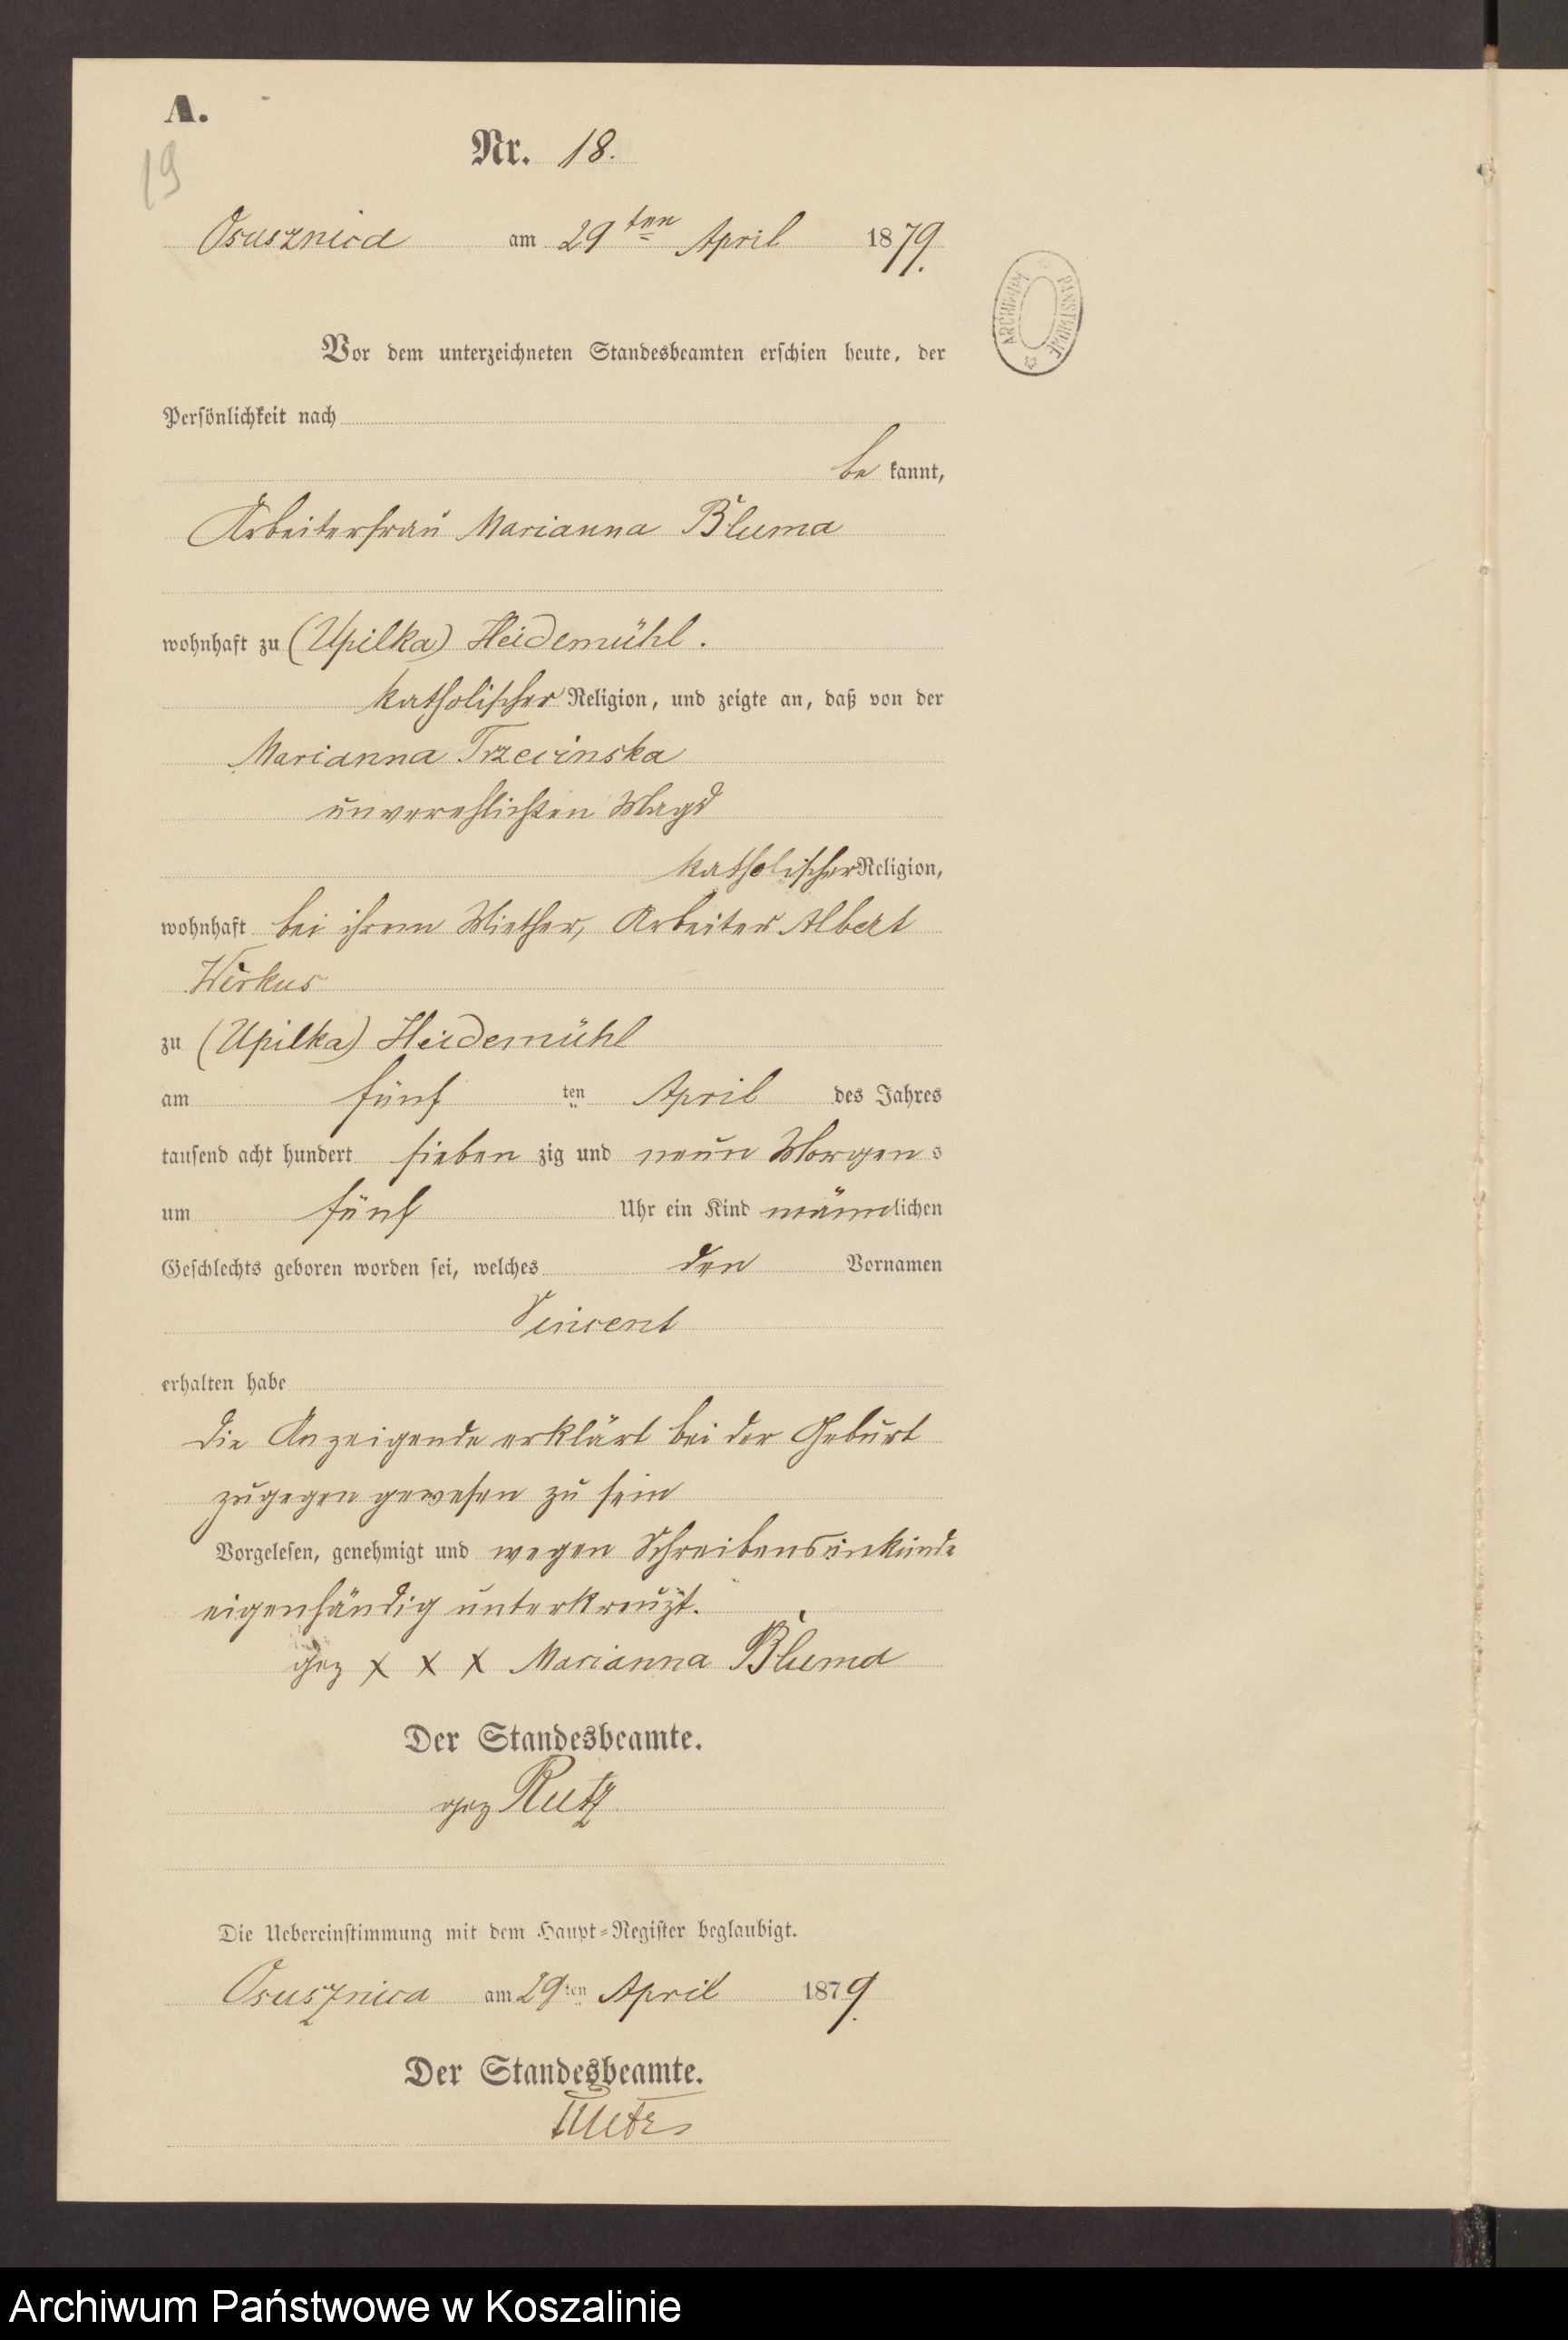 A.
19
Nr. 18.
Osusznica am 29ten April 1879.
ARCHIWUM PAŃSTWOWE
Vor dem unterzeichneten Standesbeamten erschien heute, der
Persönlichkeit nach
be kannt,
Arbeiterfrau Marianna Bluma
wohnhaft zu (Upilka) Heidemühl.
katholischer Religion, und zeigte an, daß von der
Marianna Trzecinska
unverehlichten Magd
katholischer Religion,
wohnhaft bei ihrem Miether, Arbeiter Albert
Wirkus
zu (Upilka) Heidemühl
am fünf ten April des Jahres
tausend acht hundert sieben zig und neun Morgens
um fünf Uhr ein Kind männlichen
Geschlechts geboren worden sei, welches den Vornamen
Vincent
erhalten habe
Die Anzeigende erklärt bei der Geburt
zugegen gewesen zu sein
Vorgelesen, genehmigt und wegen Schreibensunkunde
eigenhändig unterkreuzt.
gez x x x Marianna Bluma
Der Standesbeamte.
gez Rutz
Die Uebereinstimmung mit dem Haupt-Register beglaubigt.
Osusznica am 29ten April 1879.
Der Standesbeamte.
Archiwum Państwowe w Koszalinie